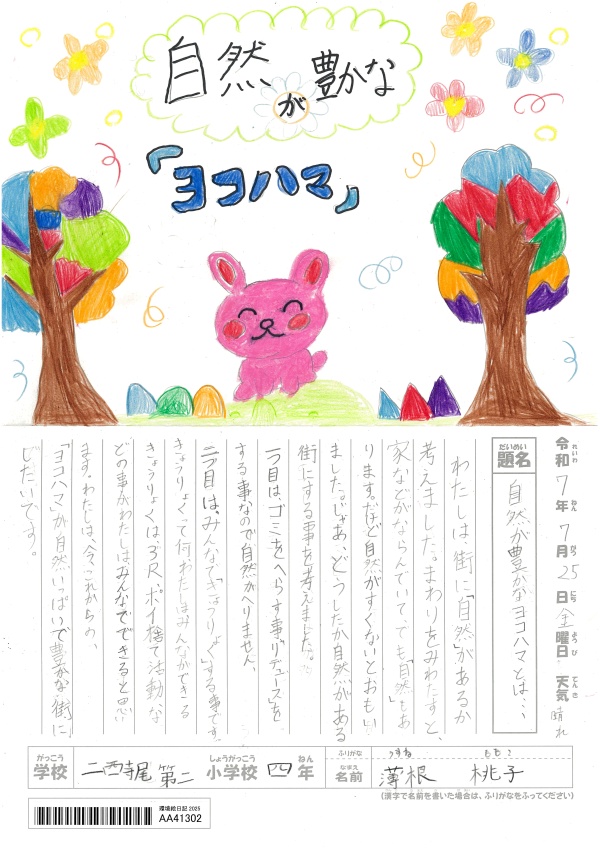 自然
が
豊かな
「ヨコハマ」
令和7年7月25日金曜日 天気晴れ
れいわ ねん がつ にち ようび てんき
だいめい
題名 自然が豊かなヨコハマとは…
わたしは、街に「自然」があるか
考えました。まわりをみわたすと、
家などがならんでいて、でも「自然」もあ
ります。だけど自然がすくないとおもい
ました。じゃあ、どうしたか自然がある
街にする事を考えました。
一つ目は、ゴミをへらす事「リデュース」を
する事なので自然がへりません。
二つ目は、みんなで「きょうりょく」する事です。
きょうりょくって何?わたしはみんなができる
きょうりょくは、3R、ポイ捨て活動な
どの事がわたしは、みんなでできると思い
ます。わたしは、今、これからの、
「ヨコハマ」が自然いっぱいで豊かな街に
したいです。
がっこう しょうがっこう ねん
学校 二西寺尾第二 小学校 四年
ふりがな うすね ももこ
なまえ
名前 薄根 桃子
(漢字で名前を書いた場合は、ふりがなをふってください)
環境絵日記 2025
AA41302